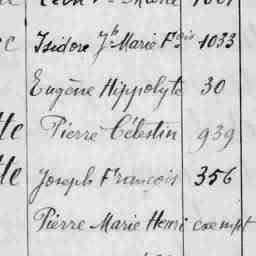 Isidore Jh Marie Fçois 1033
Eugène Hippolyte 30
tte Pierre Célestin 939
tte Joseph François 356
Pierre Marie Henri exempt